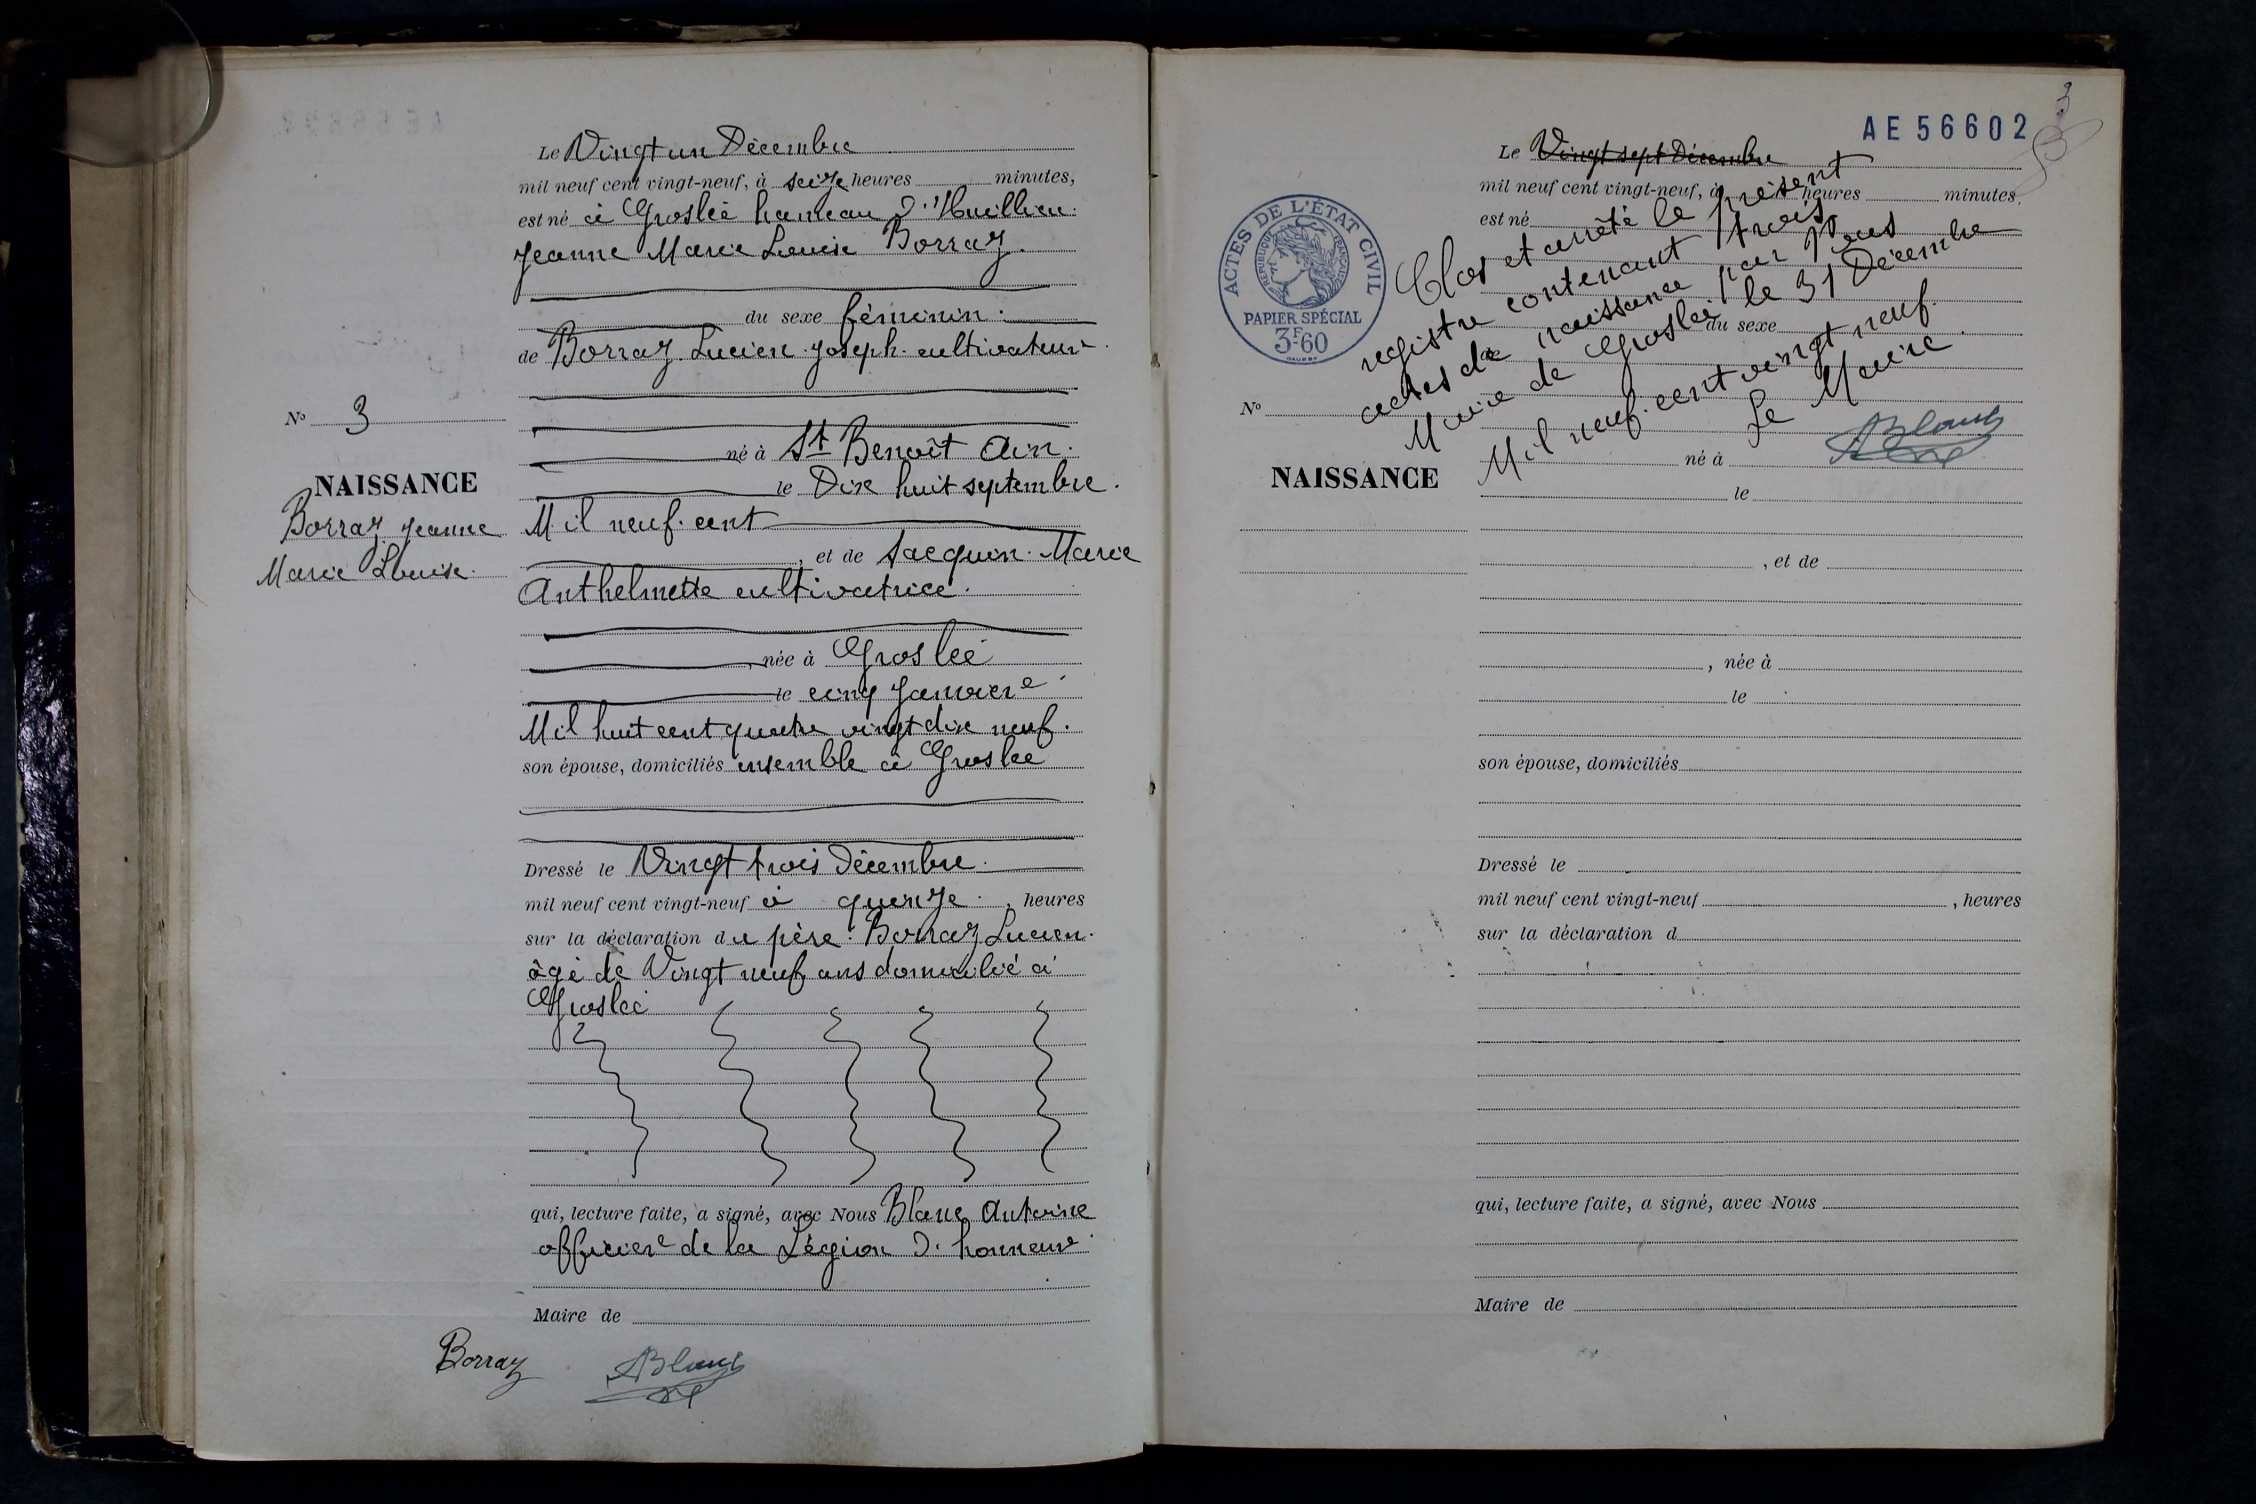 Le Vingt un Décembre
mil neuf cent vingt-neuf, à seize heures minutes,
est né à Groslée hameau d'
Jeanne Marie Louise Borraz.
du sexe féminin.
de Borraz Lucien Joseph. cultivateur.
N° 3
né à St Benoît Ain.
NAISSANCE
le Dix huit septembre.
Borraz Jeanne
Marie Louise.
Mil neuf. cent
, et de Sacquin. Marie
Anthelmette cultivatrice.
, née à Groslée
le cinq Janvier
Mil huit cent quatre vingt dix neuf.
son épouse, domiciliés ensemble à Groslée
Dressé le Vingt trois Décembre.
mil neuf cent vingt-neuf à quinze. , heures
sur la déclaration du père. Borraz Lucien.
âgé de Vingt neuf ans domicilié à
Groslée
qui, lecture faite, a signé, avec Nous Blanc Antoine
officier de la Légion d'honneur.
Maire de
Borraz ABlanc
3
AE 56602
Le Vingt sept Décembre
mil neuf cent vingt-neuf, à heures minutes,
est né
ACTES DE L'ÉTAT CIVIL
RÉPUBLIQUE FRANÇAISE
PAPIER SPÉCIAL
3F60
Clos et arrêté le présent
registre contenant trois
actes de naissance par Nous
Maire de Groslée le 31 Décembre
Mil neuf. cent vingt neuf.
Le Maire.
ABlanc
du sexe
de
N°
NAISSANCE
né à
le
, et de
, née à
le
son épouse, domiciliés
Dressé le
mil neuf cent vingt-neuf , heures
sur la déclaration d
qui, lecture faite, a signé, avec Nous
Maire de